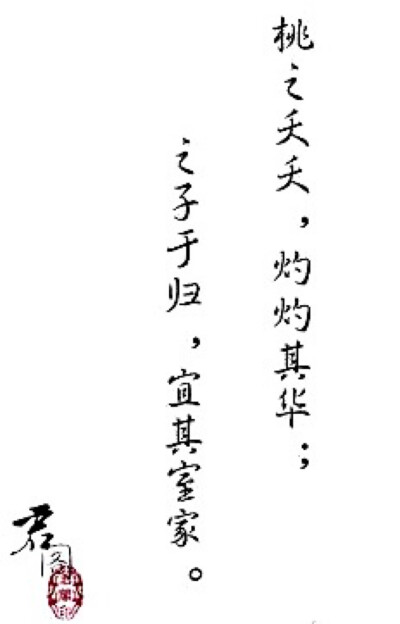 桃之夭夭，灼灼其华；
之子于归，宜其室家。
君